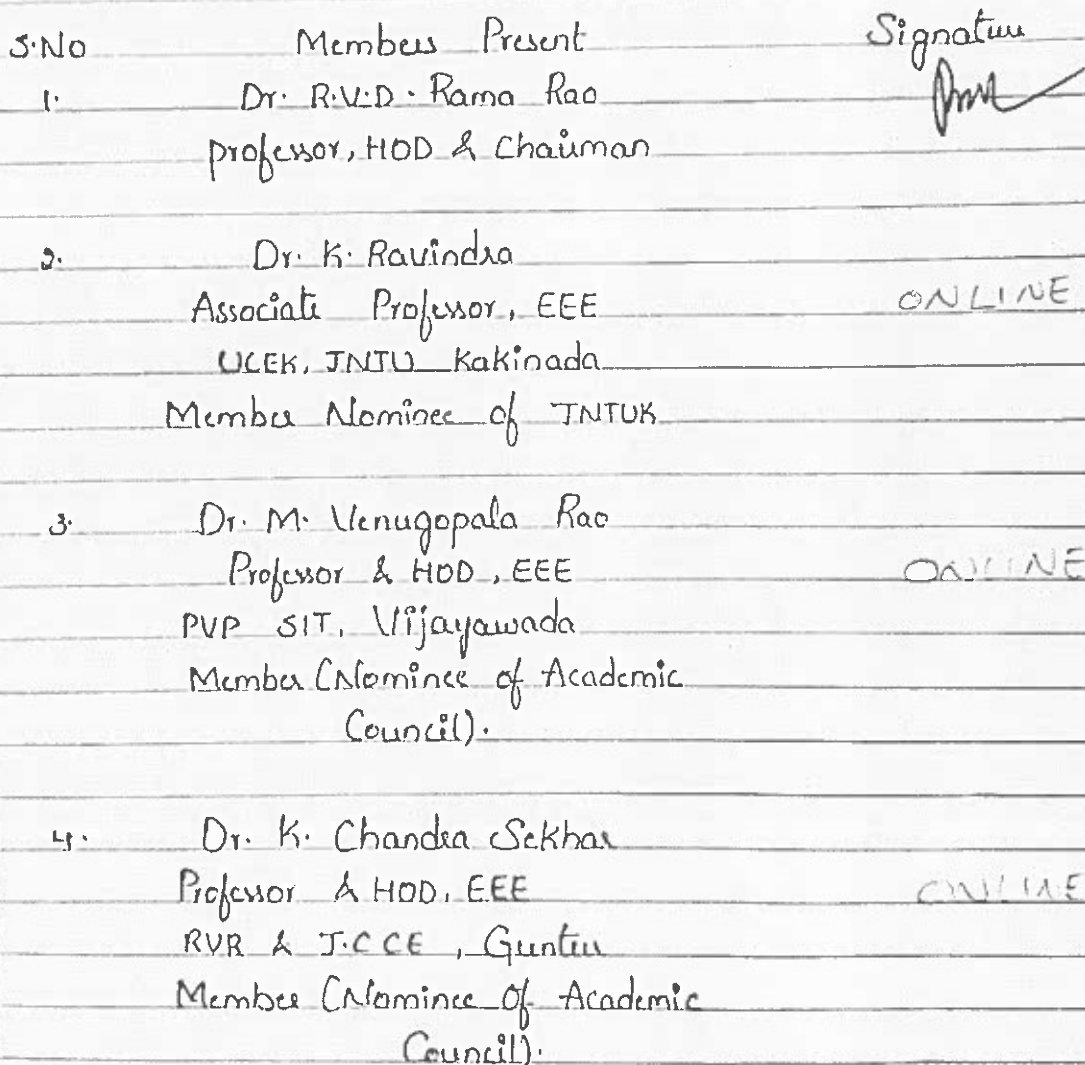 S.No Members Present Signature
1. Dr. R.V.D. Rama Rao
professor, HOD & Chairman
2. Dr. K. Ravindra
Associate Professor, EEE ONLINE
UCEK, JNTU Kakinada
Member Nominee of JNTUK
3. Dr. M. Venugopala Rao
Professor & HOD, EEE ONLINE
PVP SIT, Vijayawada
Member (Nominee of Academic
Council).
4. Dr. K. Chandra Sekhar
Professor & HOD, EEE ONLINE
RVR & J.C CE, Guntur
Member (Nominee Of Academic
Council).